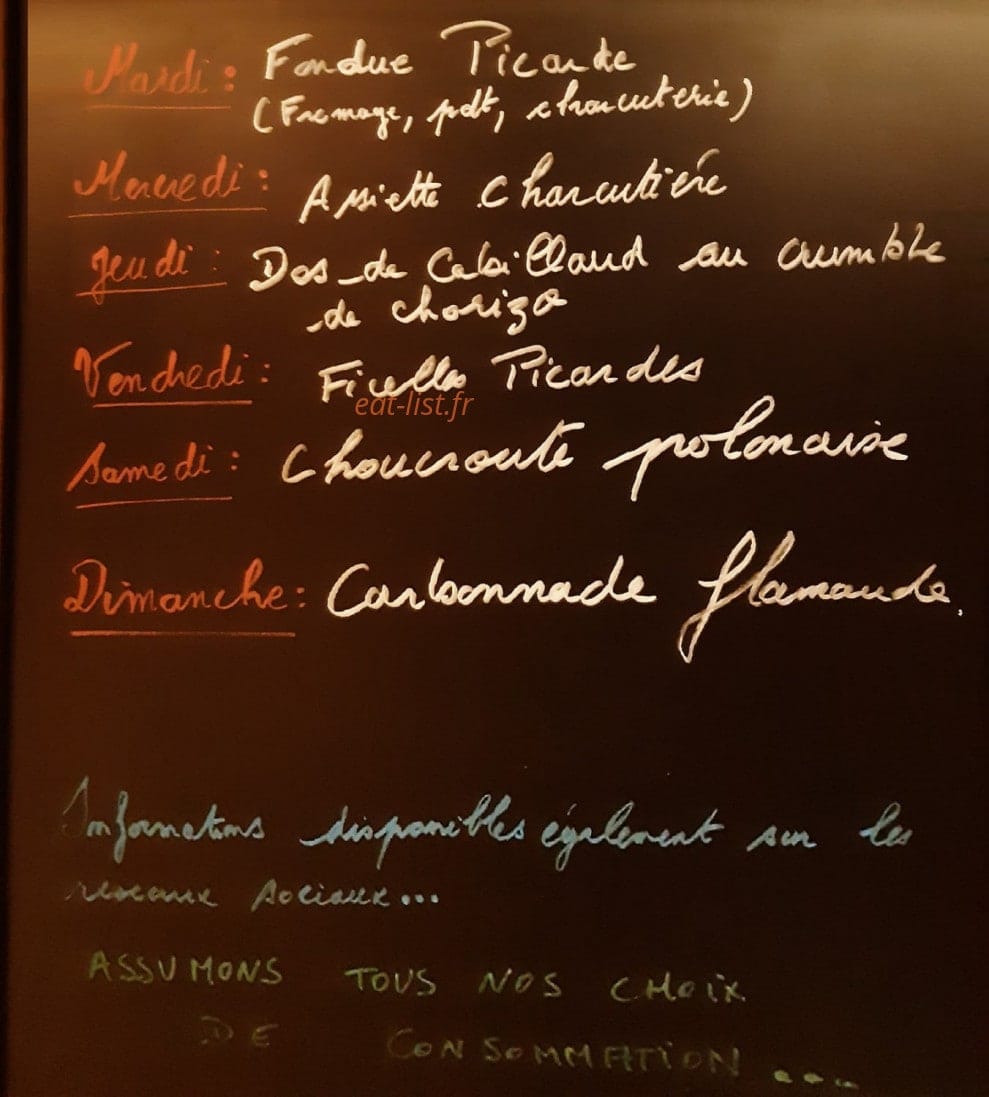 Mardi : Fondue Picarde
(Fromage, pdt, charcuterie)
Mercredi : Assiette Charcutière
Jeudi : Dos de Cabillaud au crumble
de chorizo
Vendredi : Ficelles Picardes
eat-list.fr
Samedi : Choucroute polonaise
Dimanche : Carbonnade flamande.
Informations disponibles également sur les
réseaux sociaux...
ASSUMONS TOUS NOS CHOIX
DE CONSOMMATION ...